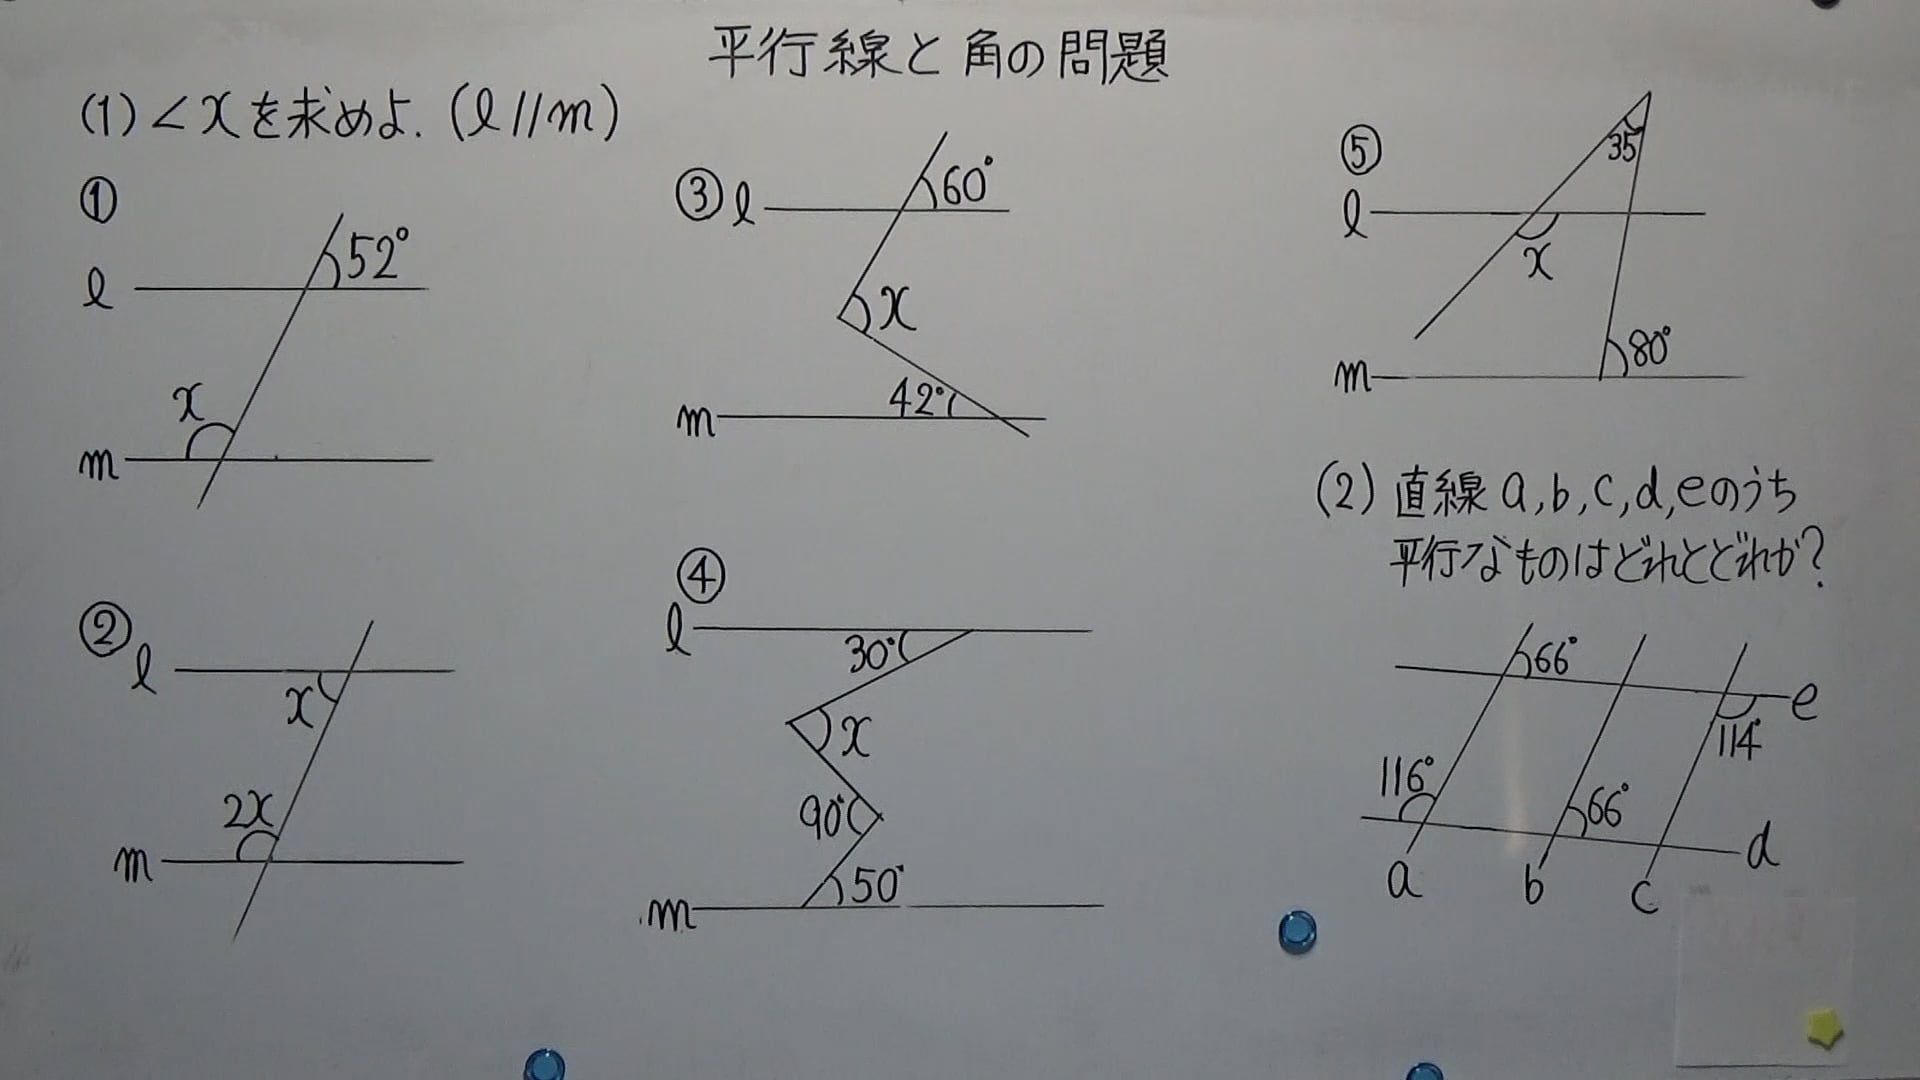 平行線と角の問題
(1)∠xを求めよ.(l//m)
①
52°
l
x
m
②
l
x
2x
m
③ l
60°
x
42°
m
④
l
30°
x
90°
50°
m
⑤
35
l
x
80°
m
(2) 直線a,b,c,d,eのうち
平行なものはどれとどれか?
66°
e
114°
116°
66°
d
a
b
c